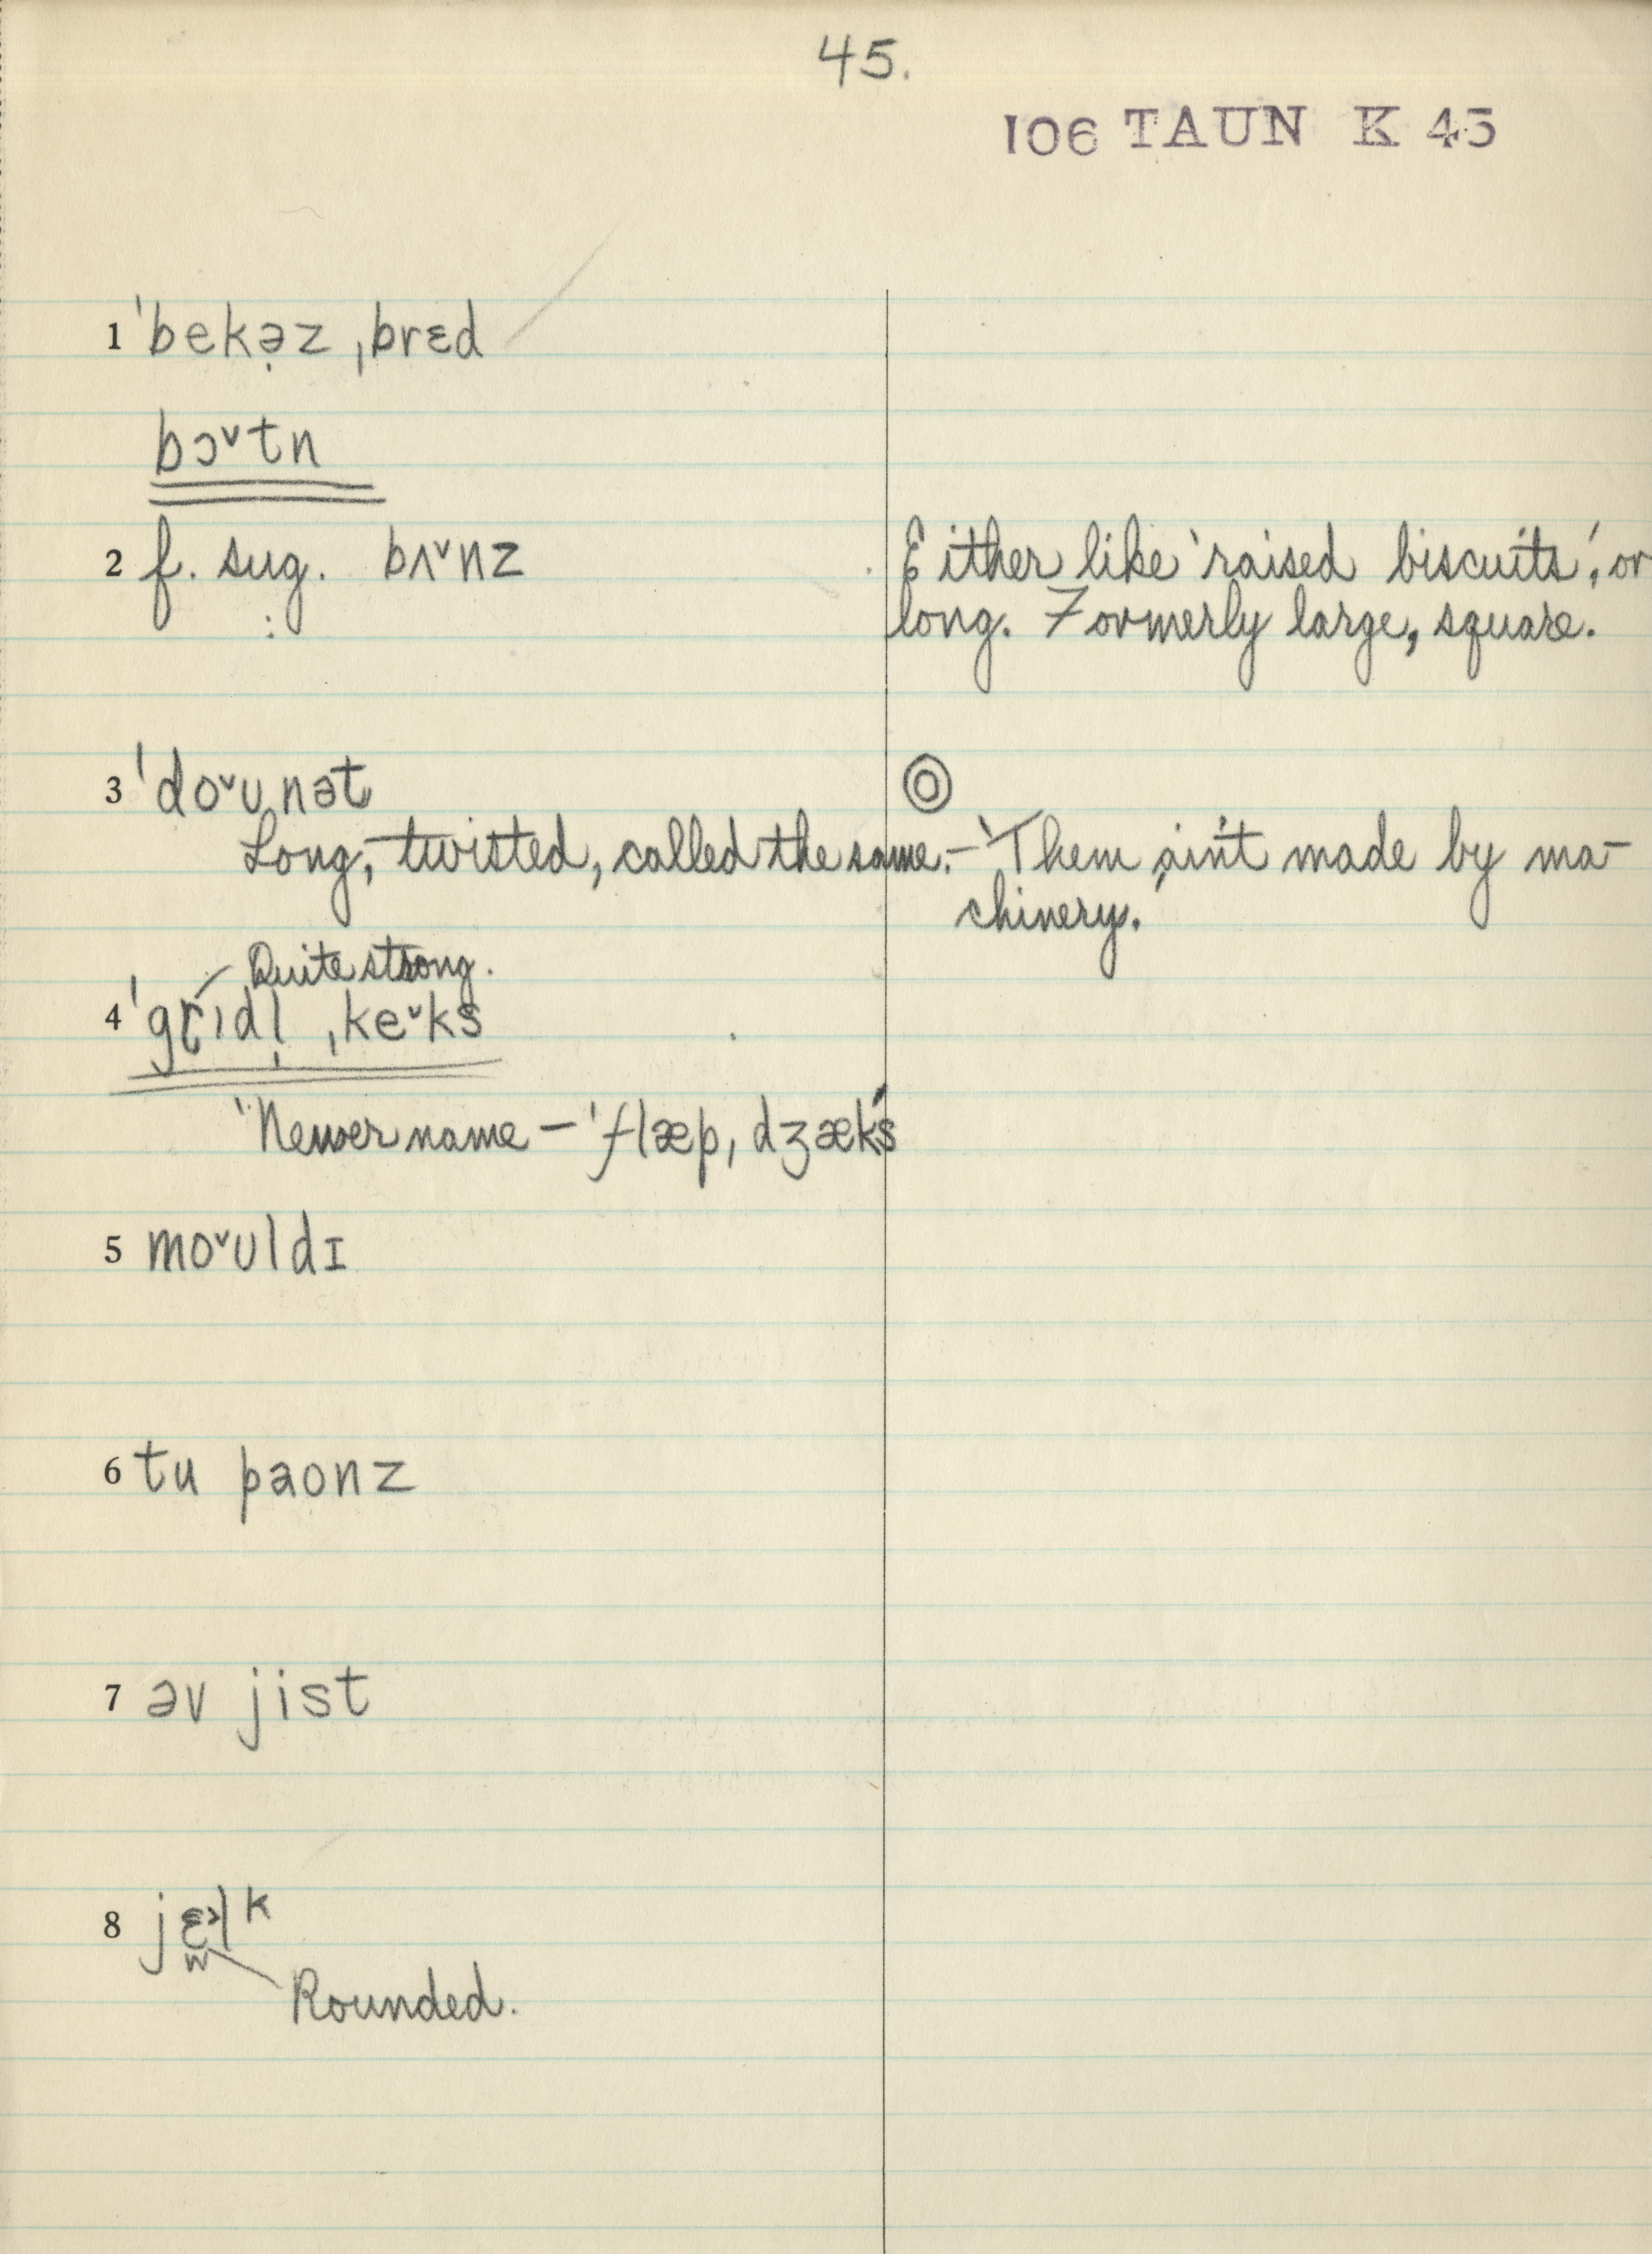 45.
106 TAUN K 45
1 ˈbekə̣z ˌbrɛd
bɔˇtn
2 f. sug. bʌˇnz Either like 'raised biscuits', or
: long. Formerly large, square.
3 ˈdoˇʊˌnət ◎
Long, twisted, called the same. – 'Them ain't made by ma-
chinery.'
Quite strong.
4 ˈgrɪdl̩ ˌkeˇks
'Newer name – ˈflæpˌdʒæks'
5 moˇʊldɪ
6 tu paonz
7 əv jist
8 jɛ˃lk
w
Rounded.